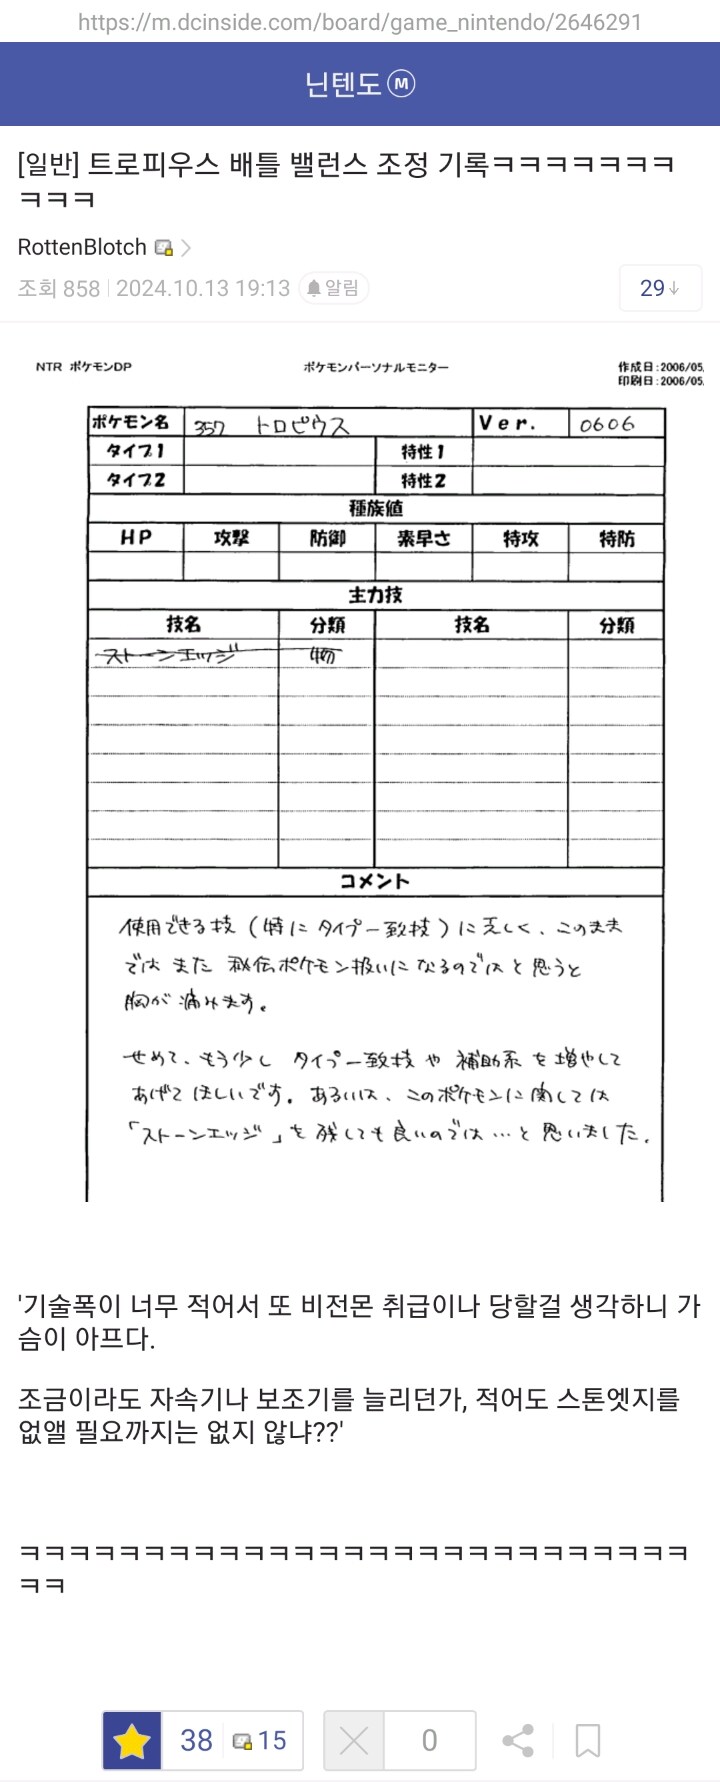 https://m.dcinside.com/board/game_nintendo/2646291
닌텐도 M
[일반] 트로피우스 배틀 밸런스 조정 기록ㅋㅋㅋㅋㅋㅋㅋ
ㅋㅋㅋ
RottenBlotch
조회 858 2024.10.13 19:13 알림 29
NTR ポケモンDP ポケモンパーソナルモニター 作成日:2006/05
印刷日:2006/05
ポケモン名 357 トロピウス Ver. 0606
タイプ1 特性1
タイプ2 特性2
種族値
HP 攻撃 防御 素早さ 特攻 特防
主力技
技名 分類 技名 分類
ストーンエッジ 物
コメント
使用できる技(特にタイプ一致技)に乏しく、このまま
ではまた秘伝ポケモン扱いになるのではと思うと
胸が痛みます。
せめて、もう少しタイプ一致技や補助系を増やして
あげてほしいです。あるいは、このポケモンに関しては
「ストーンエッジ」を残しても良いのでは…と思いました。
'기술폭이 너무 적어서 또 비전몬 취급이나 당할걸 생각하니 가
슴이 아프다.
조금이라도 자속기나 보조기를 늘리던가, 적어도 스톤엣지를
없앨 필요까지는 없지 않냐??'
ㅋㅋㅋㅋㅋㅋㅋㅋㅋㅋㅋㅋㅋㅋㅋㅋㅋㅋㅋㅋㅋㅋㅋㅋㅋㅋㅋ
ㅋㅋ
38 15 0